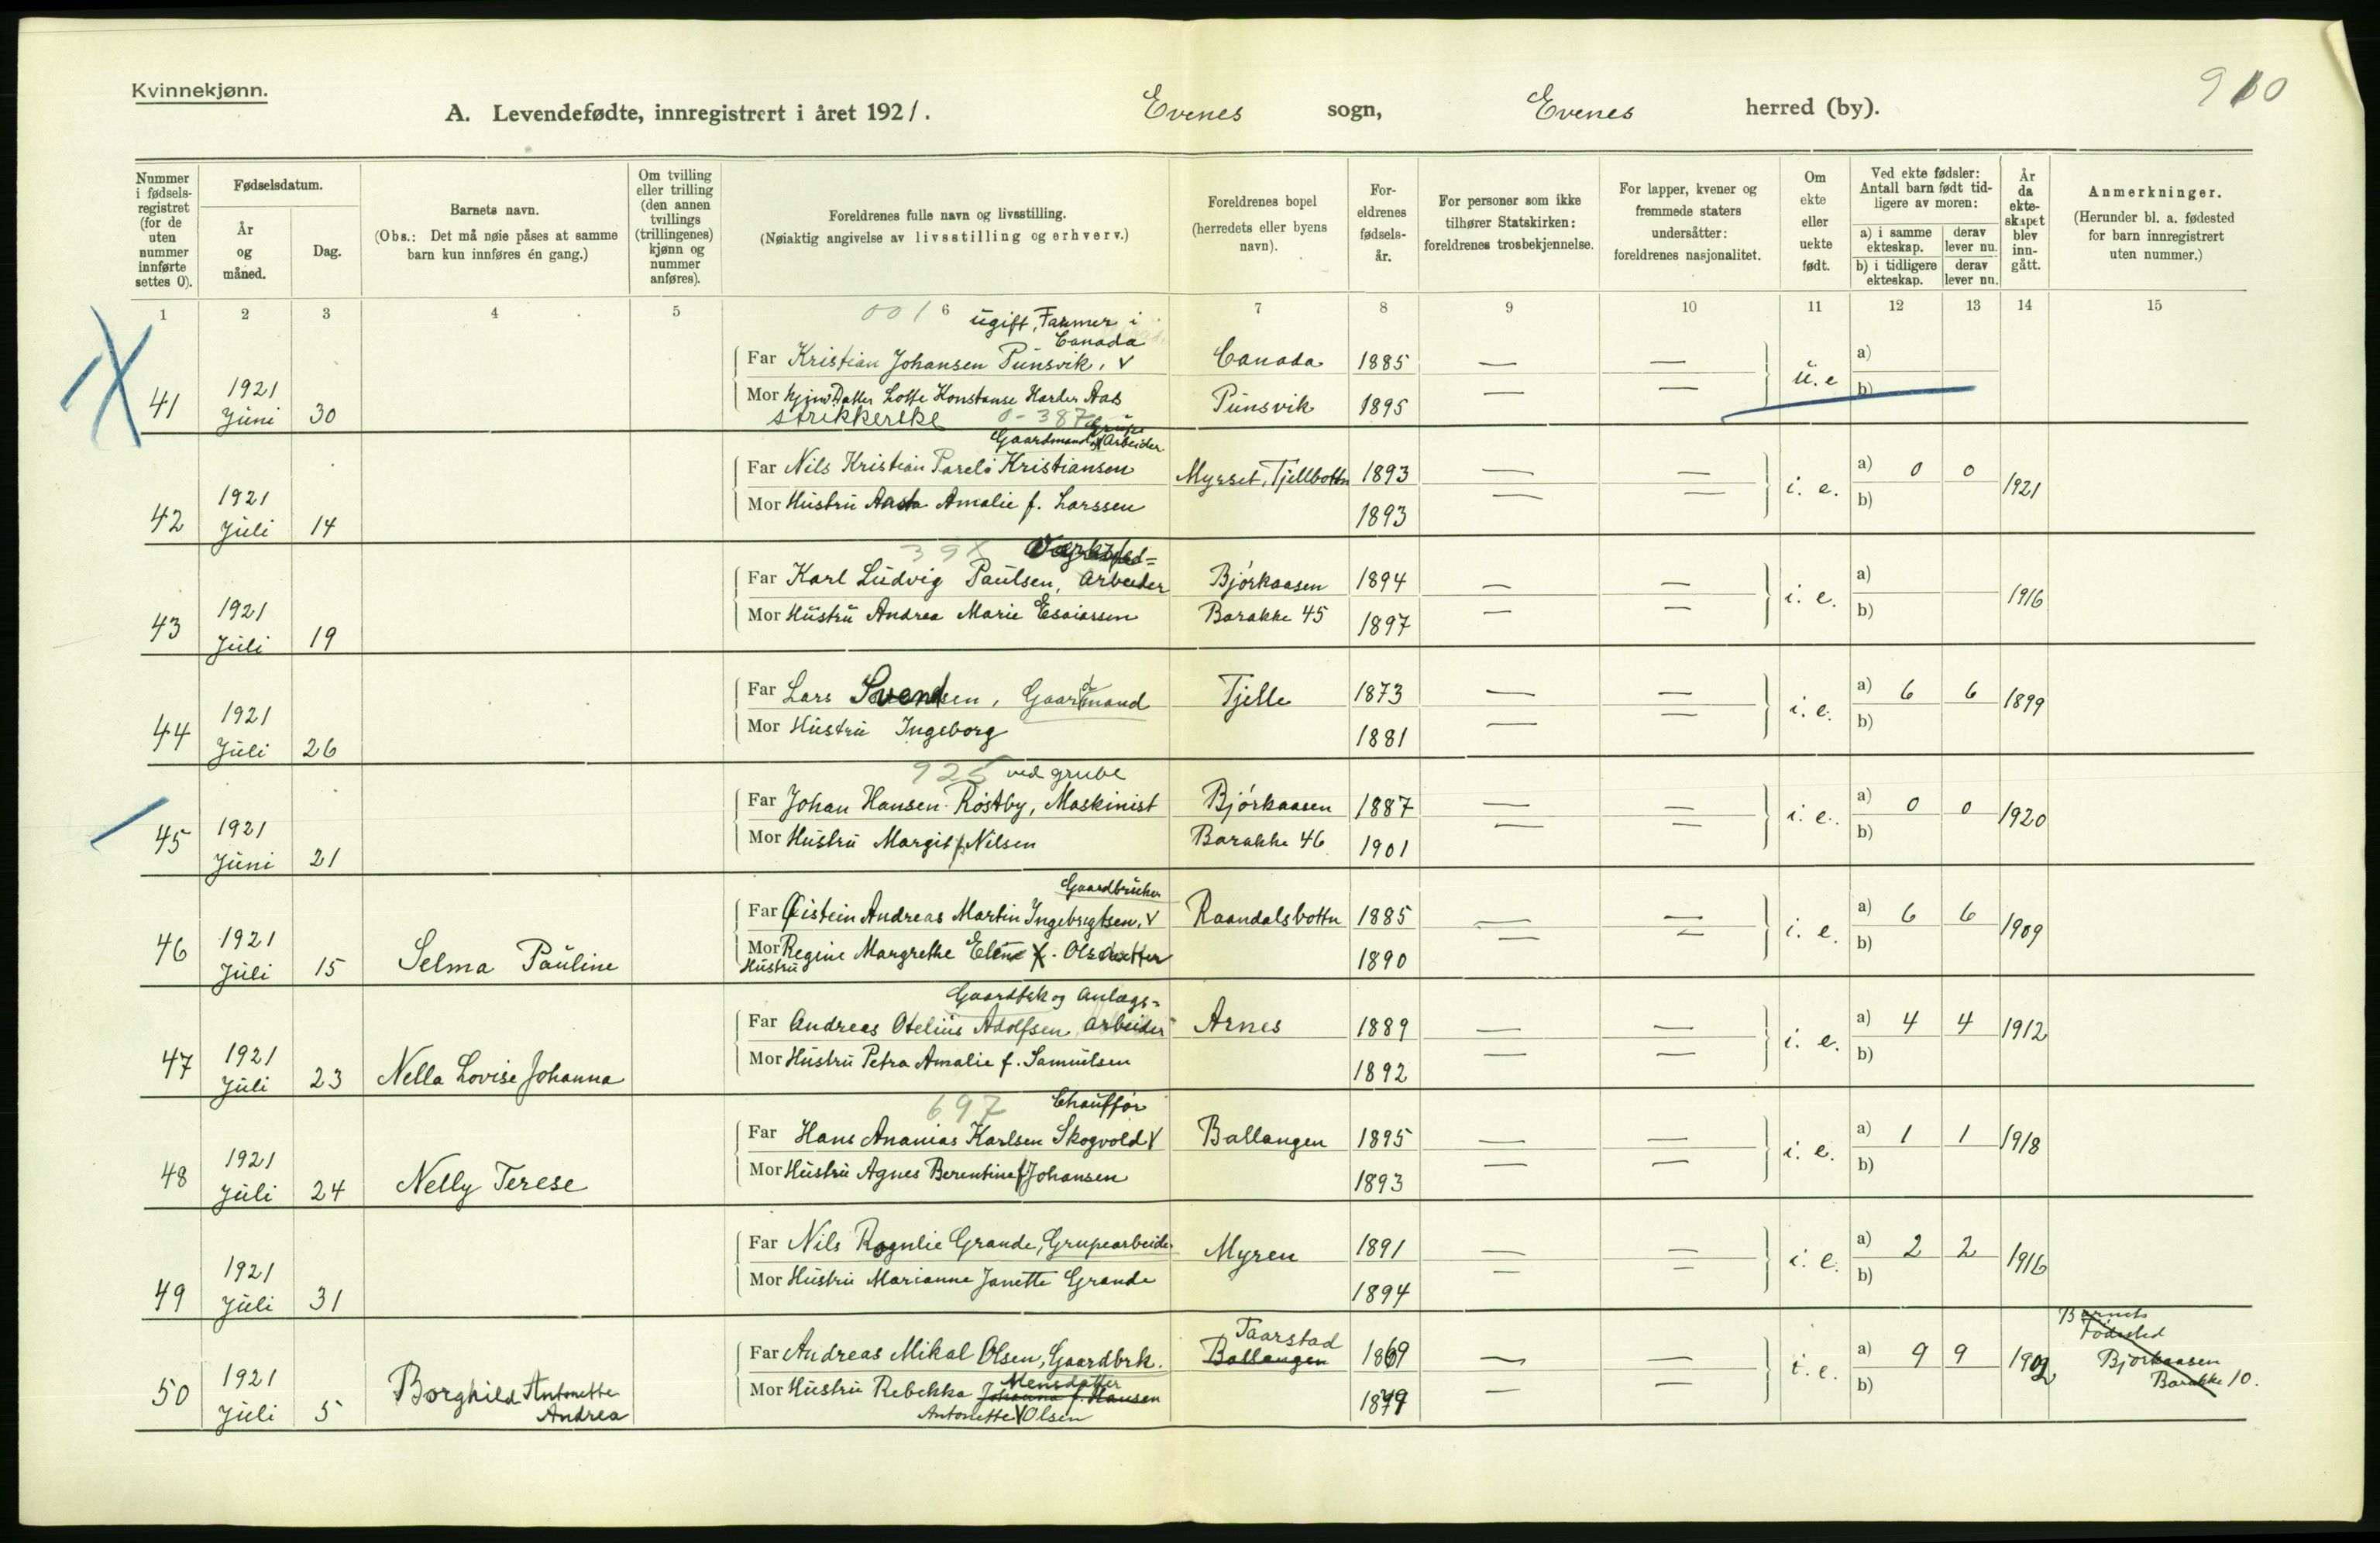 Kvinnekjønn.
A. Levendefødte, innregistrert i året 1921. Evenes sogn, Evenes herred (by).
910
Nummer i fødsels-registret (for de uten nummer innførte settes 0).
Fødselsdatum.
År og måned.
Dag.
Barnets navn.
(Obs.: Det må nøie påses at samme barn kun innføres én gang.)
Om tvilling eller trilling (den annen tvillings (trillingenes) kjønn og nummer anføres).
Foreldrenes fulle navn og livsstilling.
(Nøiaktig angivelse av livsstilling og erhverv.)
Foreldrenes bopel (herredets eller byens navn).
For-eldrenes fødsels-år.
For personer som ikke tilhører Statskirken: foreldrenes trosbekjennelse.
For lapper, kvener og fremmede staters undersåtter: foreldrenes nasjonalitet.
Om ekte eller uekte født.
Ved ekte fødsler: Antall barn født tid-ligere av moren:
a) i samme ekteskap.
derav lever nu.
b) i tidligere ekteskap.
derav lever nu.
År da ekte-skapet blev inn-gått.
Anmerkninger.
(Herunder bl. a. fødested for barn innregistrert uten nummer.)
1 2 3 4 5 6 7 8 9 10 11 12 13 14 15
001
ugift, Farmer i Canada
Far Kristian Johansen Punsvik, v Canada 1885 — —
41 1921 Juni 30 u. e a) b)
Mor Lotte Konstanse Harder Aas Punsvik 1895 — —
strikkerske 0-387
Grube
Gaardmand og Arbeider
Far Nils Kristian Parelo Kristiansen Myrset, Tjellbottn 1893 — —
42 1921 Juli 14 i. e. a) 0 0 b) 1921
Mor Hustru Aasta Amalie f. Larssen 1893 — —
39
Verksted=
Far Karl Ludvig Paulsen, arbeider Bjórkaasen 1894 — —
43 1921 Juli 19 i. e. a) b) 1916
Mor Hustru Andrea Marie Esaiassen Barakke 45 1897 — —
Far Lars Svendsen, Gaardmand Tjelle 1873 — —
44 1921 Juli 26 i. e. a) 6 6 b) 1899
Mor Hustru Ingeborg 1881 — —
925 ved grube
Far Johan Hansen Róstby, Maskinist Bjórkaasen 1887 — —
45 1921 Juni 21 i. e. a) 0 0 b) 1920
Mor Hustru Margit f. Nilsen Barakke 46 1901 — —
Gaardbruker
Far Øistein Andreas Martin Ingebrigtsen, v Raandalsbottn 1885 — —
46 1921 Juli 15 Selma Pauline i. e. a) 6 6 b) 1909
Mor Regine Margrethe Elene f. Olsdatter 1890 — —
Hustru
Gaardbk og Anlægs=
Far Andreas Otelius Adolfsen arbeider Arnes 1889 — —
47 1921 Juli 23 Nella Lovise Johanna i. e. a) 4 4 b) 1912
Mor Hustru Petra Amalie f. Samuelsen 1892 — —
697 Chauffór
Far Hans Ananias Karlsen Skogvold v Ballangen 1895 — —
48 1921 Juli 24 Nelly Terese i. e. a) 1 1 b) 1918
Mor Hustru Agnes Berentine f Johansen 1893 — —
Far Nils Rognlie Grande, Grupearbeider Myren 1891 — —
49 1921 Juli 31 i. e. a) 2 2 b) 1916
Mor Hustru Marianne Janette Grande 1894 — —
Taarstad
Far Andreas Mikal Olsen, Gaardbrk. Ballangen 1869 — —
50 1921 Juli 5 Borghild Antonette Andrea i. e. a) 9 9 b) 1902
Mensdatter
Mor Hustru Rebekka Johanna f. Hansen 1879 — —
Antonette v Olsen
Barnets
Fódested
Bjórkaasen
Barakke 10.